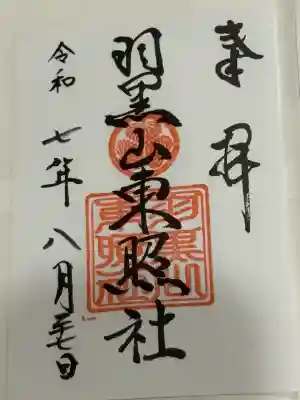 奉拝
羽黒山東照社
令和七年八月廿七日
羽黒山東照社